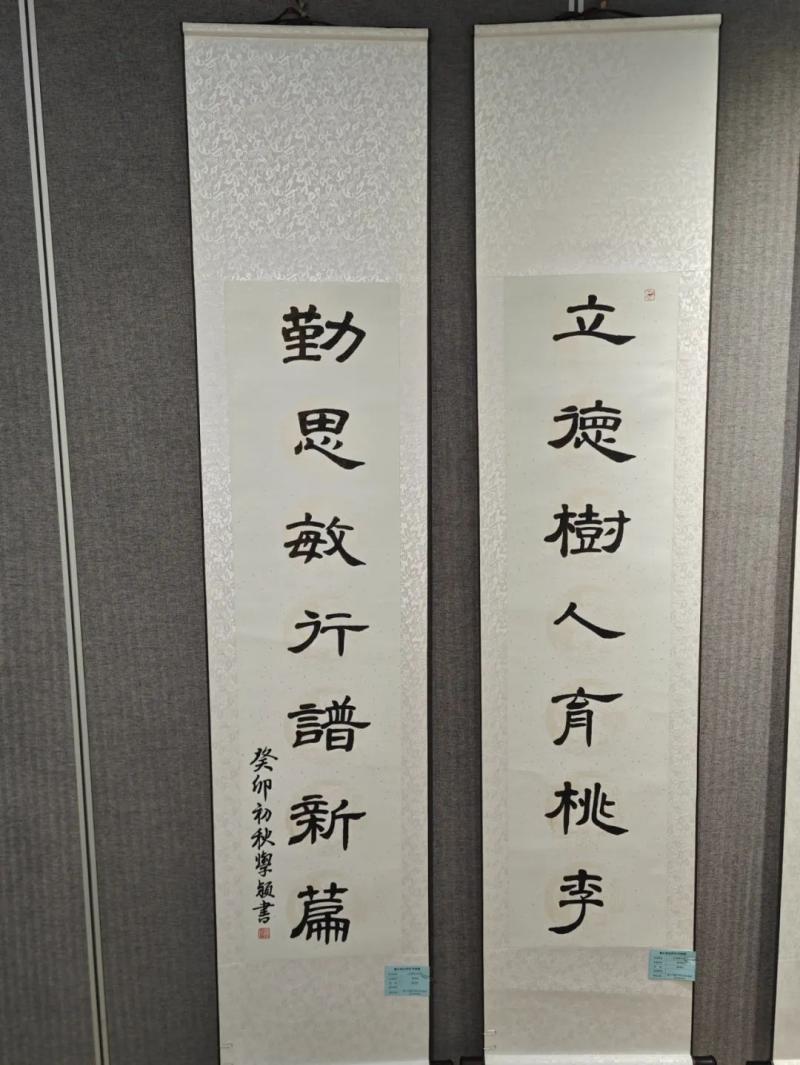 立德樹人育桃李
勤思敏行譜新篇
癸卯初秋燦穎書